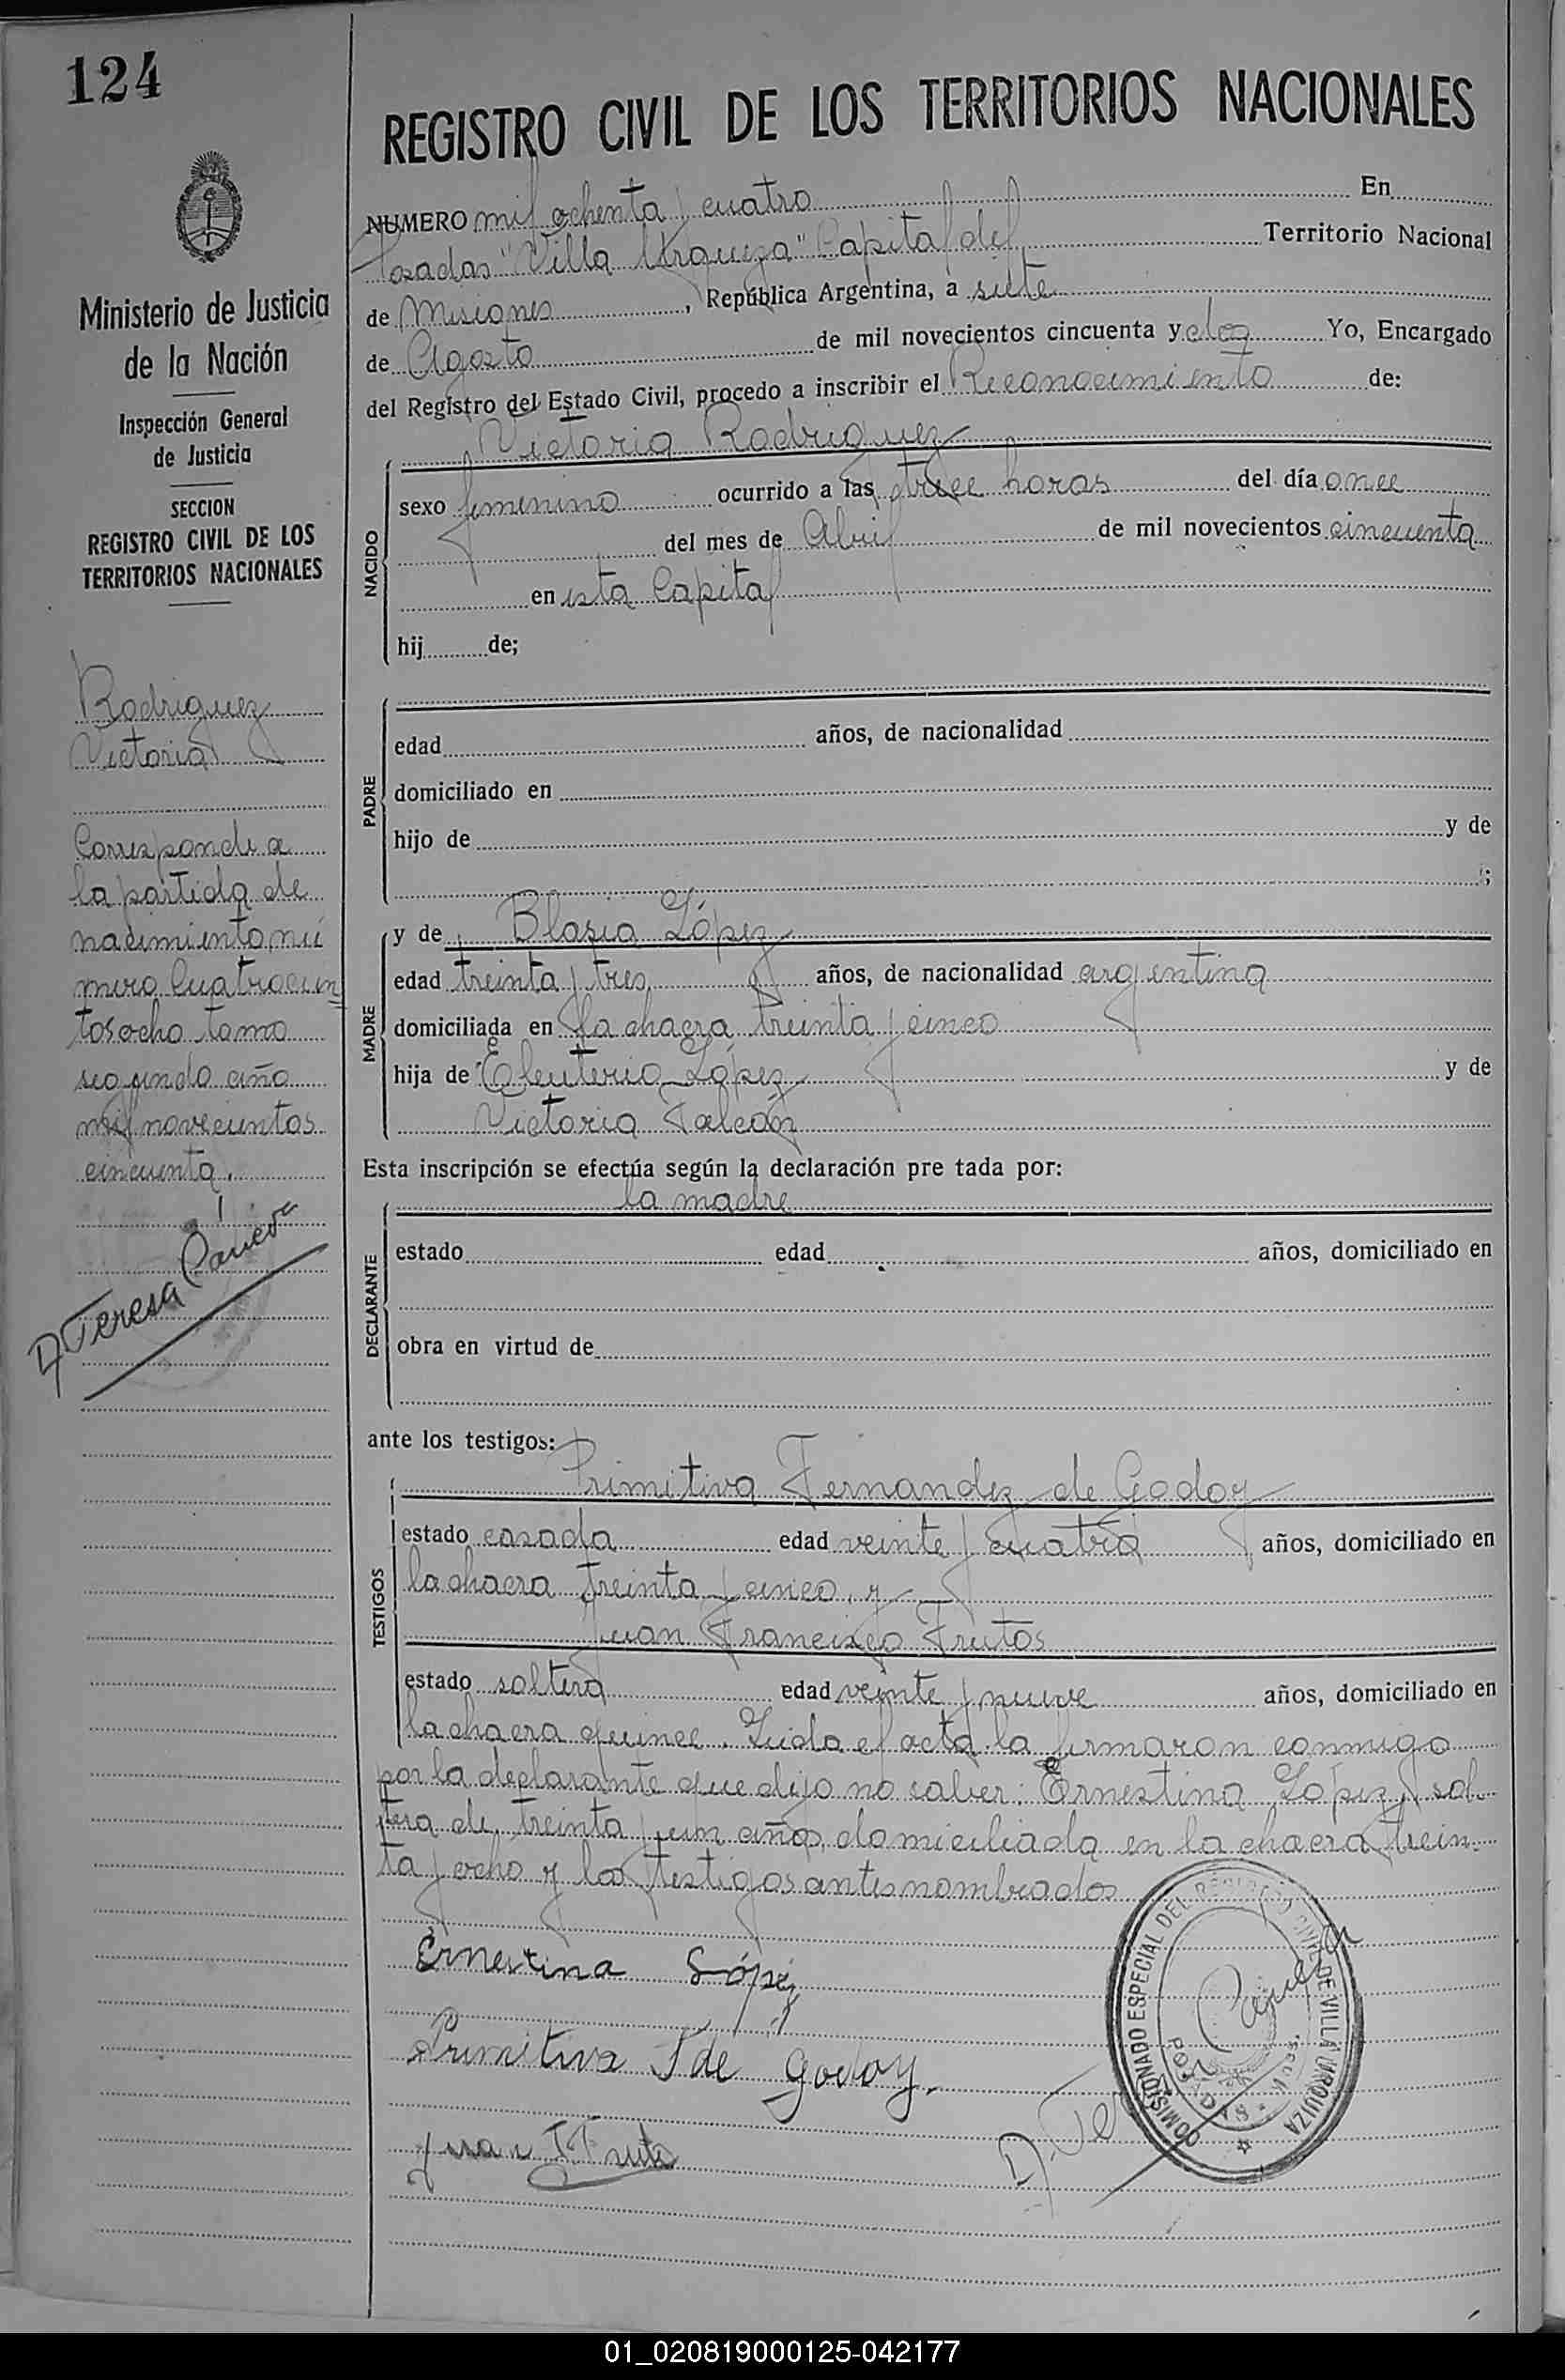 124
REGISTRO CIVIL DE LOS TERRITORIOS NACIONALES
Ministerio de Justicia
de la Nación
Inspección General
de Justicia
SECCION
REGISTRO CIVIL DE LOS
TERRITORIOS NACIONALES
Rodriguez
Victoria
Corresponde a
la partida de
nacimiento nú
mero Cuatrocien
tos ocho tomo
segundo año
mil novecientos
cincuenta.
NUMERO mil ochenta y cuatro En
Posadas "Villa Urquiza" Capital del Territorio Nacional
de Misiones, República Argentina, a siete
de Agosto de mil novecientos cincuenta y dos Yo, Encargado
del Registro del Estado Civil, procedo a inscribir el Reconocimiento de:
Victoria Rodriguez
NACIDO
sexo femenino ocurrido a las trece horas del día once
del mes de Abril de mil novecientos cincuenta
en esta Capital
hij de;
PADRE
edad años, de nacionalidad
domiciliado en
hijo de y de
;
MADRE
y de Blasia López
edad treinta y tres años, de nacionalidad argentina
domiciliada en la chacra treinta y cinco
hija de Eleuterio López y de
Victoria Falcón
Esta inscripción se efectúa según la declaración pre tada por:
la madre
DECLARANTE
estado edad años, domiciliado en
obra en virtud de
ante los testigos:
Primitiva Fernandez de Godoy
TESTIGOS
estado casada edad veinte y cuatro años, domiciliado en
la chacra treinta y cinco, y
Juan Francisco Frutos
estado soltero edad veinte y nueve años, domiciliado en
la chacra quince. Leida el acta la firmaron conmigo
por la declarante que dijo no saber: Ernestina López, sol-
tera de treinta y un años, domiciliada en la chacra trein-
ta y ocho y los testigos antes nombrados
Ernestina López
Primitiva F de Godoy.
Juan F Frutos
COMISIONADO ESPECIAL DEL REGISTRO CIVIL DE VILLA URQUIZA
POSADAS
01_020819000125-042177